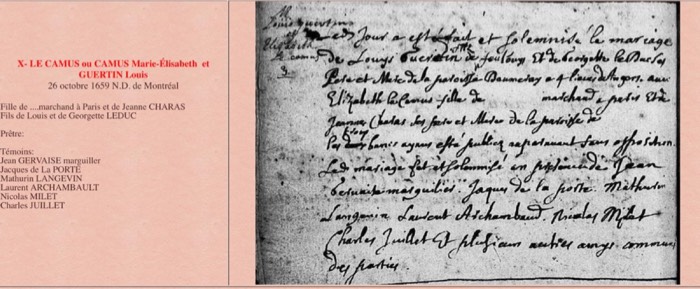 X- LE CAMUS ou CAMUS Marie-Élisabeth et
GUERTIN Louis
26 octobre 1659 N.D. de Montréal
Fille de ....marchand à Paris et de Jeanne CHARAS
Fils de Louis et de Georgette LEDUC
Prêtre:
Témoins:
Jean GERVAISE marguiller
Jacques de La PORTE
Mathurin LANGEVIN
Laurent ARCHAMBAULT
Nicolas MILET
Charles JUILLET
Led. Jour a esté fait et solemnisé le mariage
de Louys Guertin
Elizabeth le Camus fille de marchand a paris Et de
Jeanne Charas Ses pere et Mere De la paroisse de
bans ayans esté publiez auparavant sans opposition
Led mariage fut solemnisé en presence de Jean
Gervaise marguilier. Jaques de la porte. Mathurin
Langevin Laurent Archambaud. Nicolas Milet
Charles Juillet Et plusieurs autres amys communs
des parties.